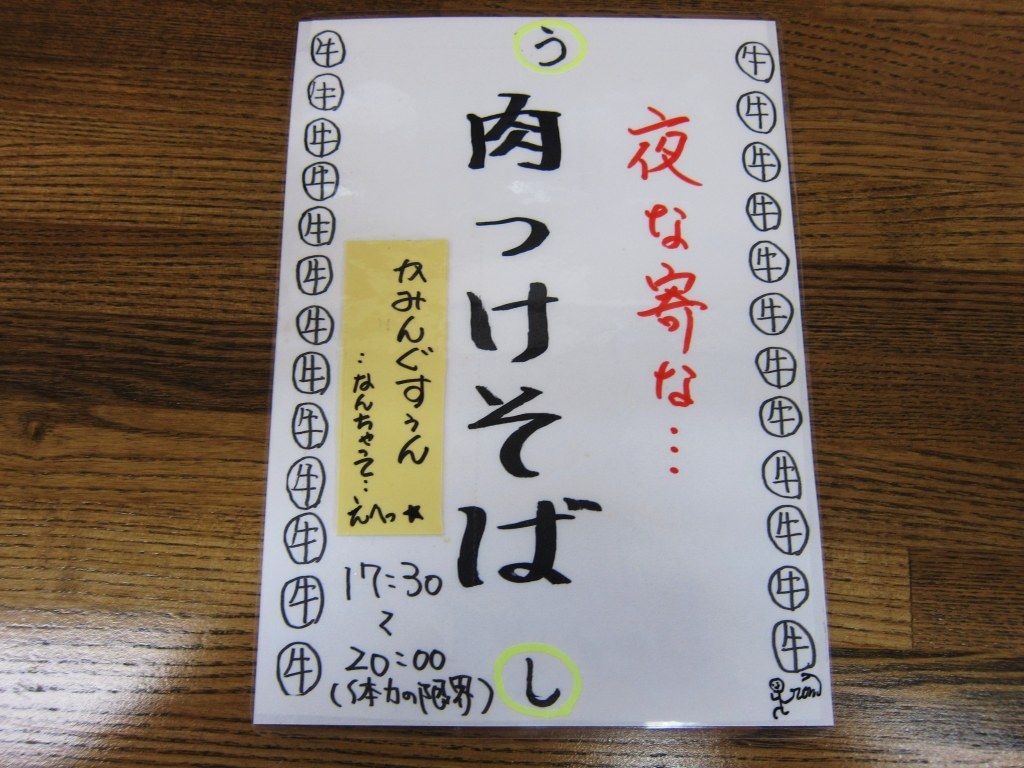 牛牛牛牛牛牛牛牛牛牛牛牛
夜な寄な…
う
肉つけそば
し
かみんぐすぅん
…なんちゃって…
えへっ★
17:30
〜
20:00
(体力の限界)
牛牛牛牛牛牛牛牛牛牛牛牛牛